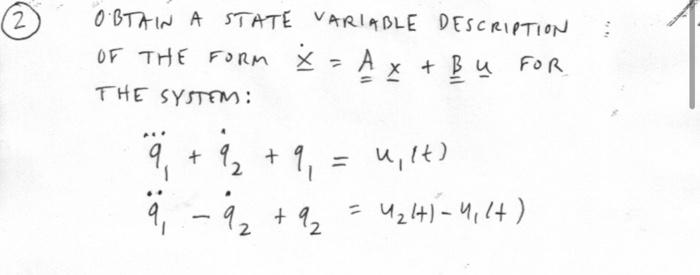 (2) OBTAIN A STATE VARIABLE DESCRIPTION
OF THE FORM ẋ = A x + B u FOR
THE SYSTEM:
q⃛₁ + q̇₂ + q₁ = u₁(t)
q̈₁ - q̇₂ + q₂ = u₂(t) - u₁(t)